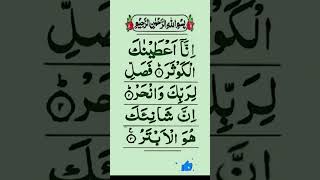 بِسْمِ اللهِ الرَّحْمٰنِ الرَّحِيْمِ
اِنَّاۤ اَعْطَيْنٰكَ
الْكَوْثَرَ۝ فَصَلِّ
لِرَبِّكَ وَانْحَرْ۝۲
اِنَّ شَانِئَكَ
هُوَ الْاَبْتَرُ۝۳